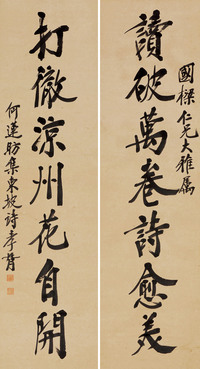 國樑仁兄大雅屬
讀破萬卷詩愈美
打徹涼州花自開
何蓮昉集東坡詩孝胥